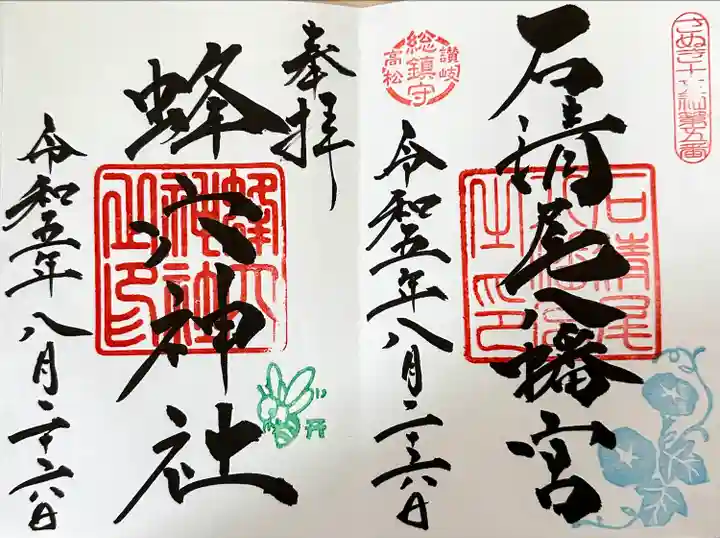 石清尾八幡宮
石清尾八幡宮之印
讃岐
総鎮守
高松
令和五年八月二十六日
奉拝
蜂穴神社
蜂穴神社之印
令和五年八月二十六日